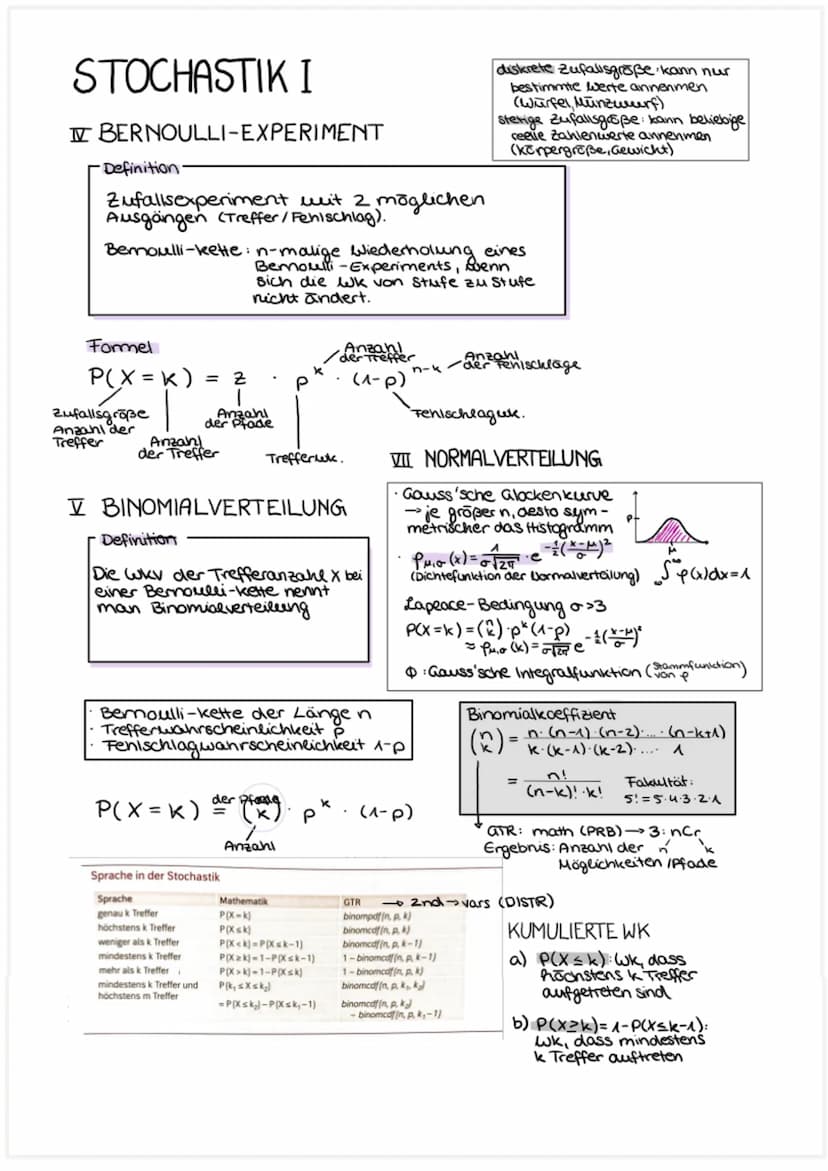 STOCHASTIK I
diskrete Zufallsgröße: kann nur
bestimmte Werte annehmen
(Würfel, Münzwurf)
stetige Zufallsgöße: kann beliebige
reelle Zahlenwerte annehmen
(Körpergröße, Gewicht)
IV BERNOULLI-EXPERIMENT
Definition
Zufallsexperiment mit 2 möglichen
Ausgängen (Treffer/Fehlschlag).
Bernoulli-Kette: n-malige Wiederholung eines
Bernoulli-Experiments, wenn
sich die WK von Stufe zu Stufe
nicht ändert.
Formel
Anzahl der Treffer
Anzahl der Fehlschläge
P(X = k) = z · p^k · (1-p)^n-k
Zufallsgröße
Anzahl der
Treffer
Anzahl
der Treffer
Anzahl
der Pfade
Trefferwk.
Fehlschlagwk.
V BINOMIALVERTEILUNG
Definition
Die WKV der Trefferanzahl X bei
einer Bernoulli-Kette nennt
man Binomialverteilung
VII NORMALVERTEILUNG
· Gauss'sche Glockenkurve
→ je größer n, desto sym-
metrischer das Histogramm
P
μ
· φμ,σ(x) = 1/(σ√2π) · e^-½((x-μ)/σ)²
(Dichtefunktion der Normalverteilung)
∫ φ(x)dx = 1
Laplace-Bedingung σ>3
P(X=k) = (n k) · p^k (1-p)
≈ φμ,σ(k) = 1/(σ√2π) e^-½((x-μ)/σ)²
Φ: Gauss'sche Integralfunktion (Stammfunktion von φ)
· Bernoulli-Kette der Länge n
· Trefferwahrscheinlichkeit p
· Fehlschlagwahrscheinlichkeit 1-p
P(X = k) = (n k) · p^k · (1-p)
der Pfade
Anzahl
Binomialkoeffizient
(n k) = n·(n-1)·(n-2)·...·(n-k+1) / k·(k-1)·(k-2)·... 1
= n! / (n-k)!·k!
Fakultät:
5! = 5·4·3·2·1
GTR: math (PRB) → 3: nCr
n k
Ergebnis: Anzahl der
Möglichkeiten/Pfade
Sprache in der Stochastik
Sprache Mathematik GTR → 2nd → vars (DISTR)
genau k Treffer P(X=k) binompdf(n, p, k)
höchstens k Treffer P(X≤k) binomcdf(n, p, k)
weniger als k Treffer P(X<k)=P(X≤k−1) binomcdf(n, p, k−1)
mindestens k Treffer P(X≥k)=1−P(X≤k−1) 1−binomcdf(n, p, k−1)
mehr als k Treffer P(X>k)=1−P(X≤k) 1−binomcdf(n, p, k)
mindestens k Treffer und P(k₁≤X≤k₂) binomcdf(n, p, k₁, k₂)
höchstens m Treffer
=P(X≤k₂)−P(X≤k₁−1) binomcdf(n, p, k₂)
− binomcdf(n, p, k₁−1)
KUMULIERTE WK
a) P(X≤k): WK, dass
höchstens k Treffer
aufgetreten sind
b) P(X≥k) = 1-P(X≤k-1):
WK, dass mindestens
k Treffer auftreten